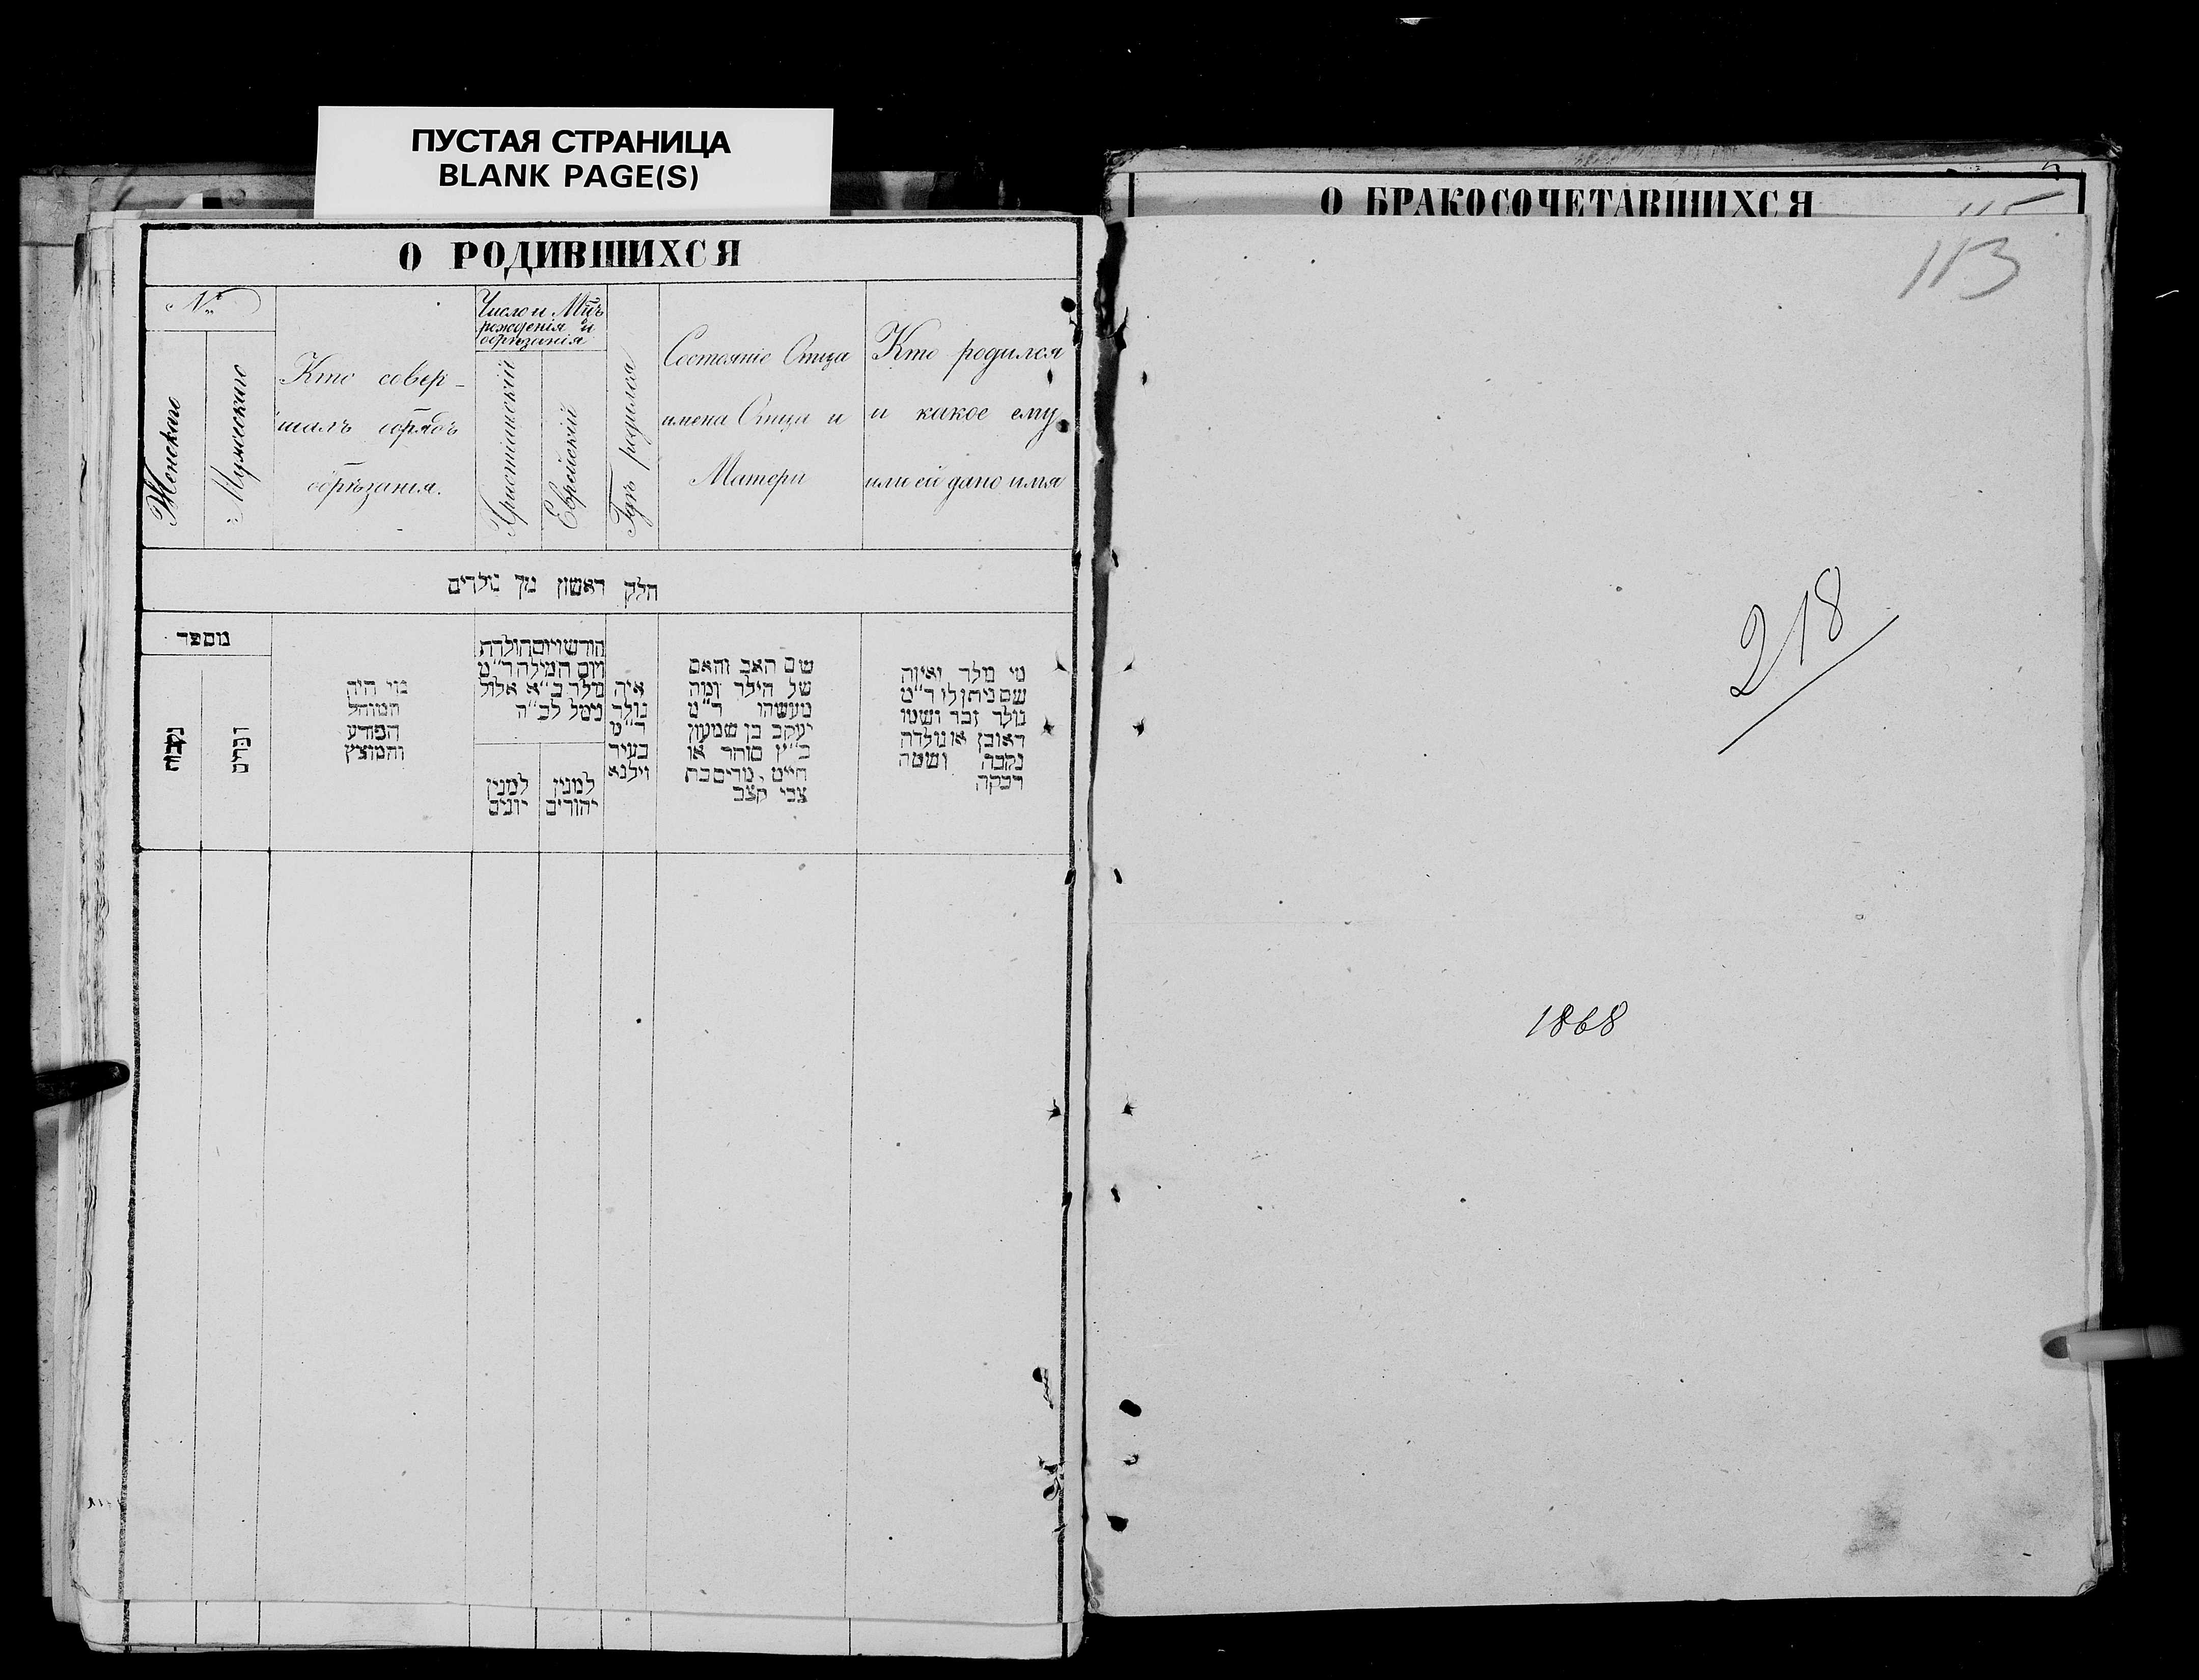 ПУСТАЯ СТРАНИЦА
BLANK PAGE(S)
О РОДИВШИХСЯ
№
Женскаго
Мужескаго
Кто совер-
шалъ обрядъ
обрѣзанія.
Число и Мѣцъ
рожденія и
обрѣзанія
Христіанскій
Еврейскій
Гдѣ родился
Состояніе Отца
имена Отца и
Матери
Кто родился
и какое ему
или ей дано имя
חלק ראשון מן נולדים
מספר
נקבות
זכרים
מי היה
המוהל
הפורע
והמוצץ
חודש ויום הולדת
ויום המילה ד״מ
נולד כ״א אלול
נימל לכ״ה
למנין
יונים
למנין
יהודים
איה
נולד
ד״מ
בעיר
וילנא
שם האב והאם
של הילד ומה
מעשהו ד״מ
יעקב בן שמעון
כ״ץ סוחר או
חייט, מרים בת
צבי קצב
מי נולד ואיזה
שם ניתן לו ד״מ
נולד זכר ושמו
ראובן או נולדה
נקבה ושמה
רבקה
О БРАКОСОЧЕТАВШИХСЯ
115
113
218
1868